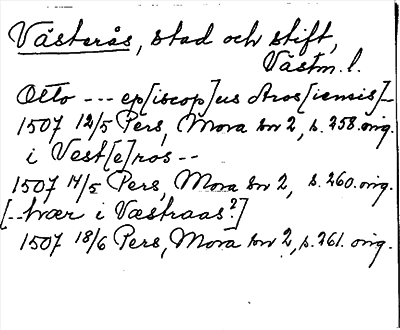 Västerås, stad och stift,
Västm. l.
Otto --- ep[iscop]us Aros[iensis]--
1507 12/5 Pers, Mora sn 2, s. 258. orig.
i Vest[e]ros--
1507 14/5 Pers, Mora sn 2, s. 260. orig.
[--hvær i Væstraas?]
1507 18/6 Pers, Mora sn 2, s. 261. orig.